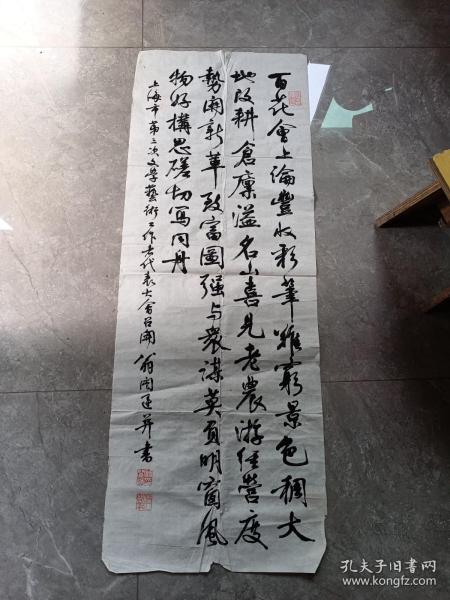 百花會上論豐收彩筆難窮景色稠大
地改耕倉廩溢名山喜見老農游經營度
勢開新革致富圖强与衆謀莫負明窗風
物好構思磋切寫同舟
上海市第三次文學藝術工作者代表大會召開 翁闓運并書
孔夫子旧书网
www.kongfz.com